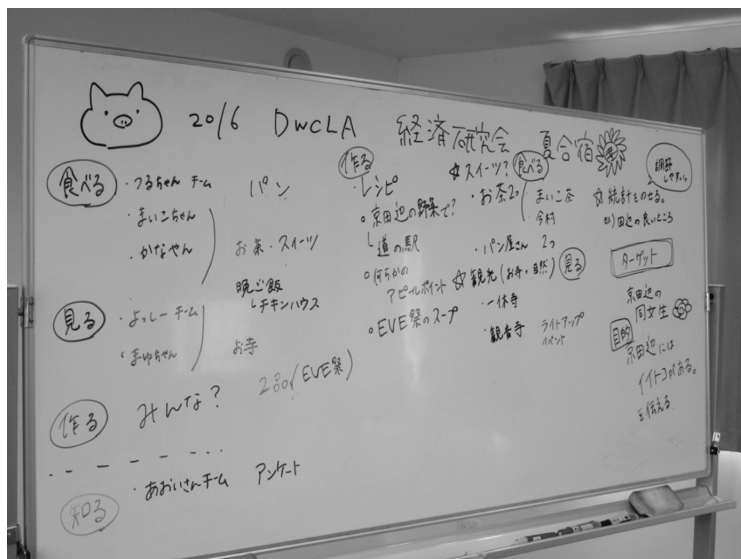 2016 DWCLA 経済研究会 夏合宿
食べる
・つるちゃん チーム パン
・まいこちゃん
・かなやん お茶・スイーツ
晩ご飯
└チキンハウス
見る
・よっしーチーム
・まゆちゃん お寺
作る
みんな? 2品(EVE祭)
知る
・あおいさんチーム アンケート
作る
・レシピ
○京田辺の野菜で?
└道の駅
○何らかの
アピールポイント
○EVE祭のスープ
☆スイーツ? 食べる
・お茶2つ
まいこ茶
今村
・パン屋さん 2つ
☆観光(お寺・自然) 見る
・一休寺
・観音寺 ライトアップ
イベント
☆統計をのせる。
田辺の良いところ
ターゲット
京田辺の
同女生
目的
京田辺には
イイトコがある。
を伝える